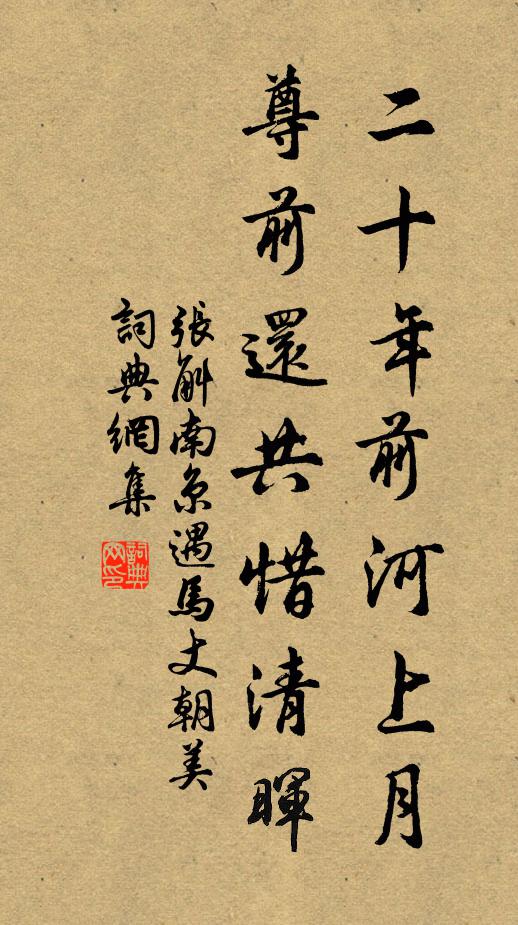 二十年前河上月
尊前還共惜清暉
張斛南京遇馬丈朝美
詞典網集
詞典網印